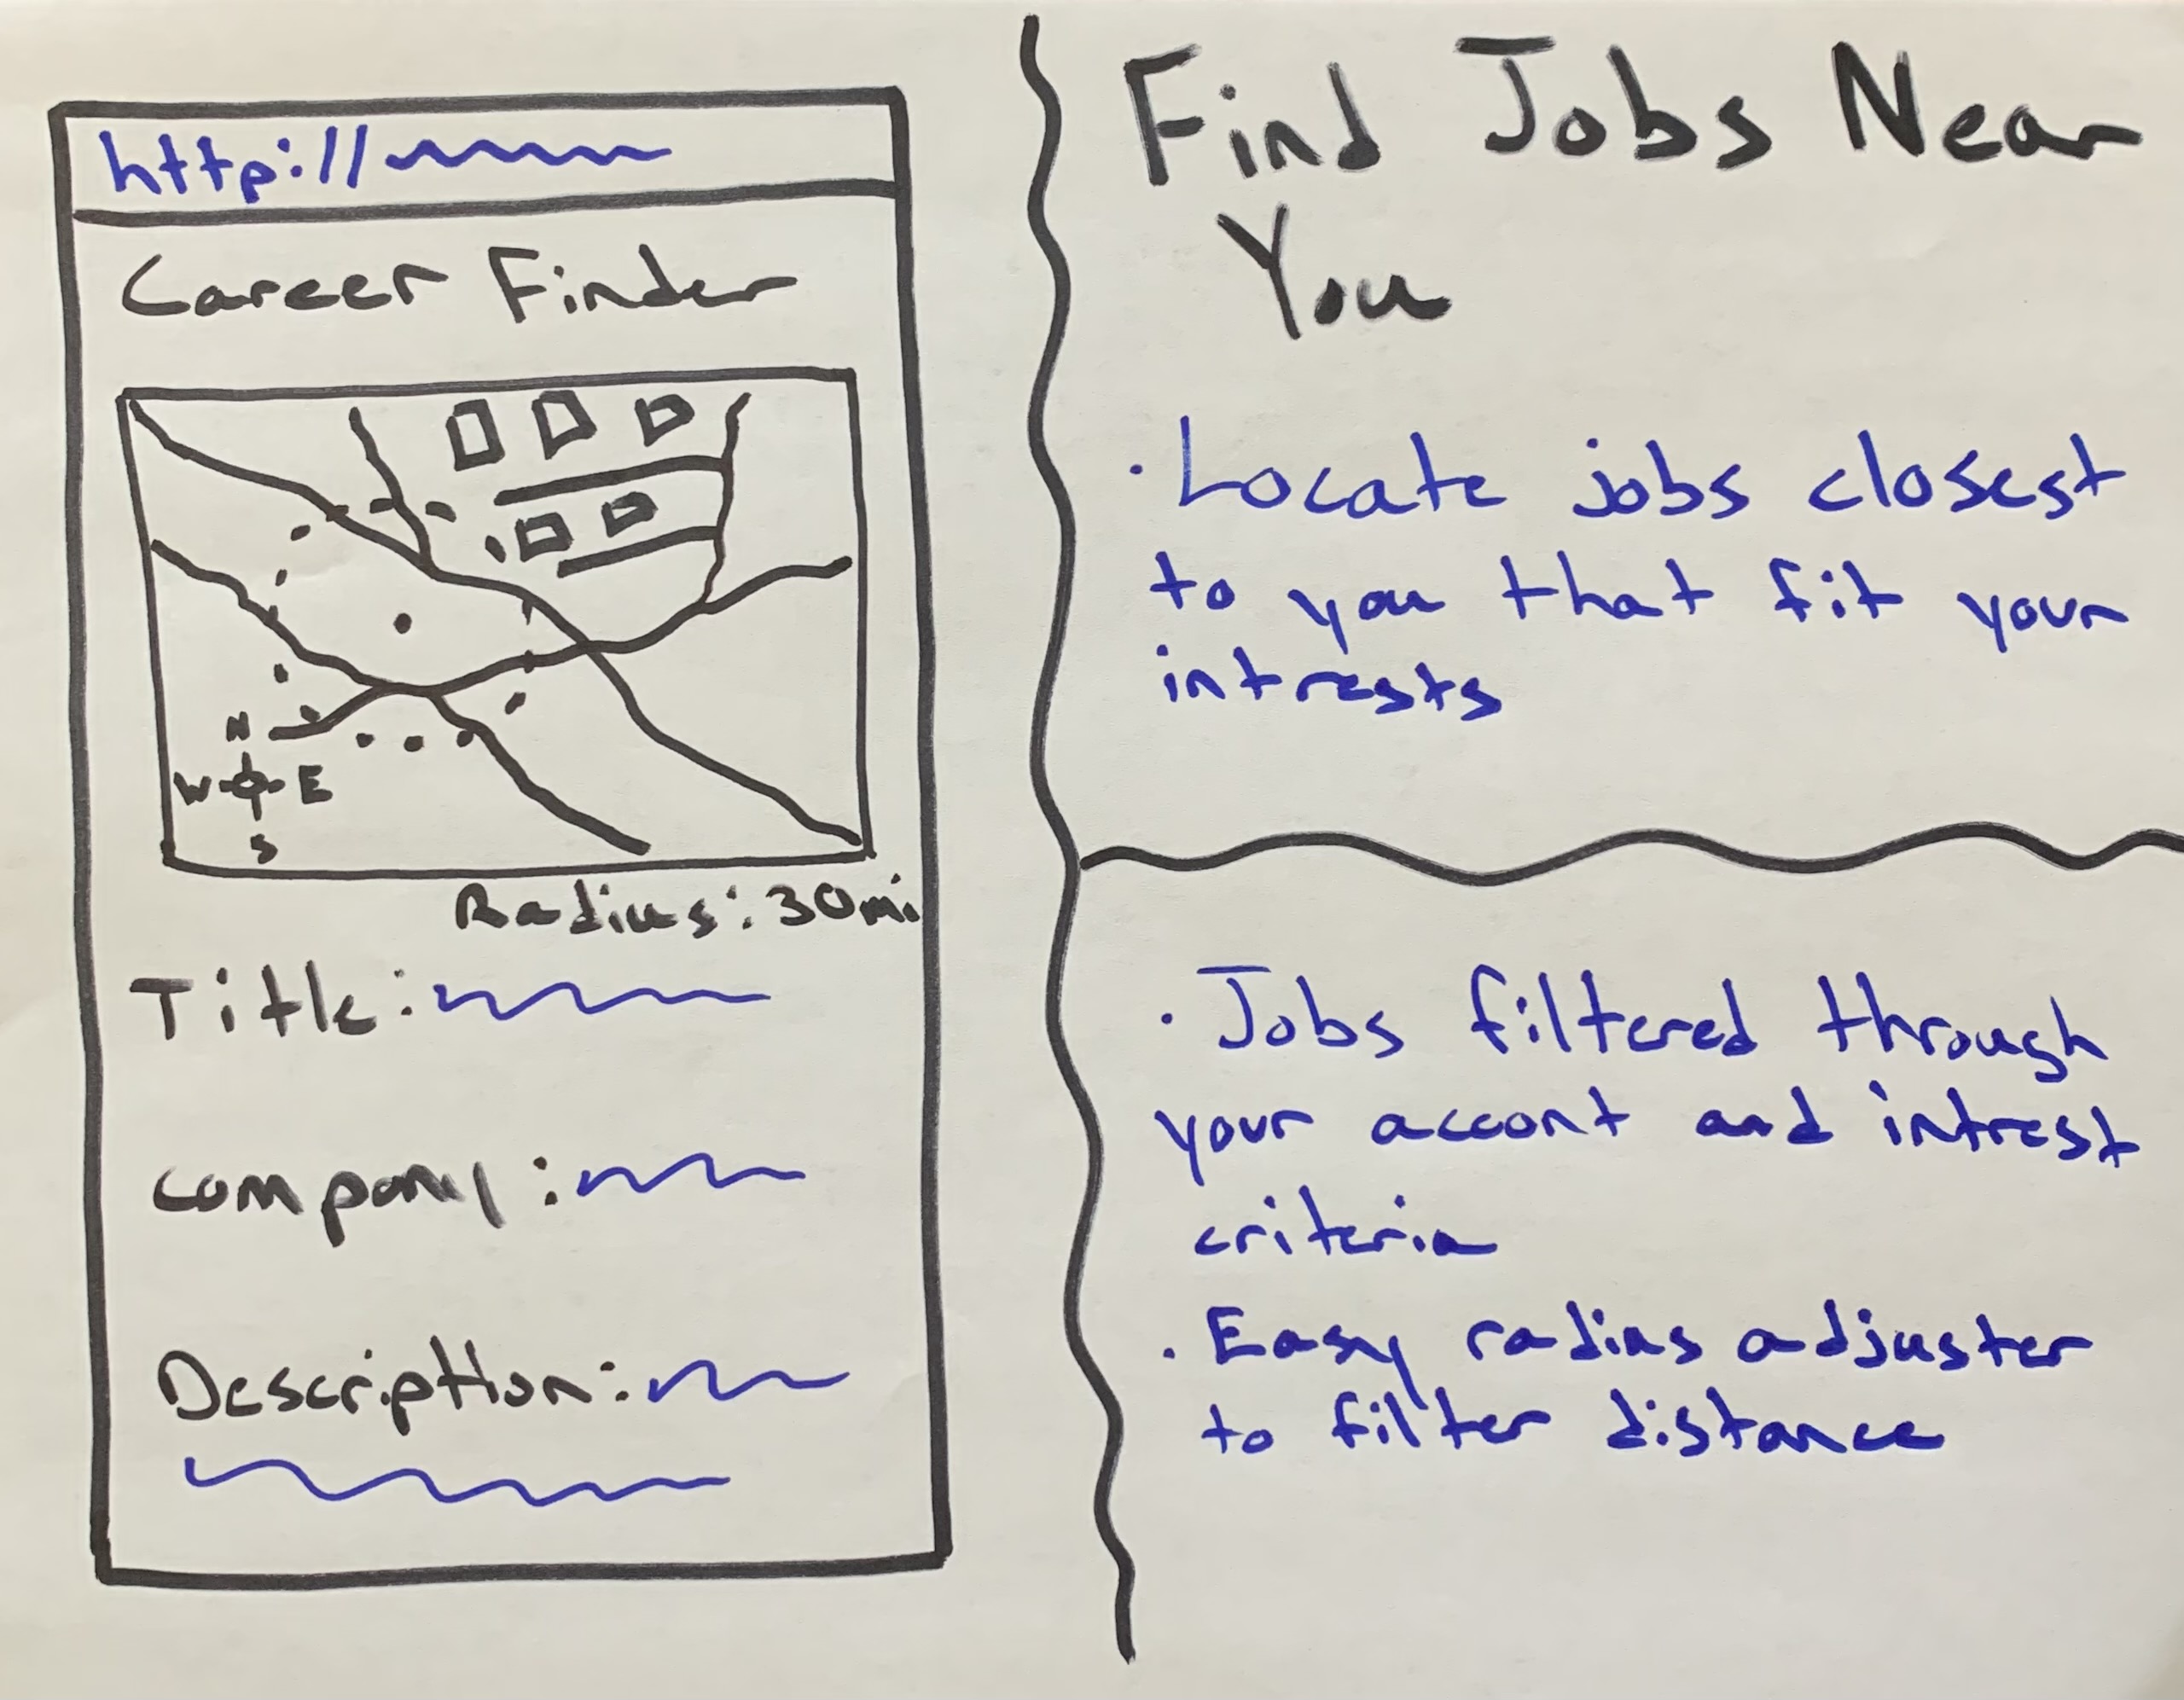 http://
Career Finder
N
W E
S
Radius: 30mi
Title:
company:
Description:
Find Jobs Near
You
· Locate jobs closest
to you that fit your
intrests
· Jobs filtered through
your accont and intrest
criteria
· Easy radius adjuster
to filter distance